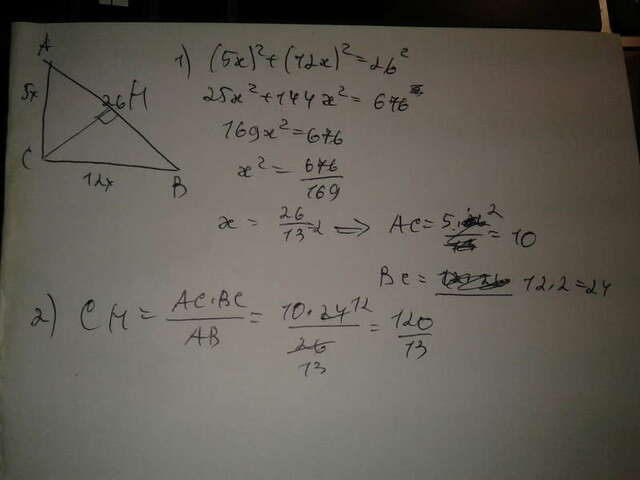 A
5x
26 H
C
12x
B
1) (5x)² + (12x)² = 26²
25x² + 144x² = 676
169x² = 676
x² = 676/169
x = 26/13 = 2 ⟹ AC = 5·2 = 10
BC = 12·2 = 24
2) CH = AC·BC/AB = 10·24 12/26 13 = 120/13